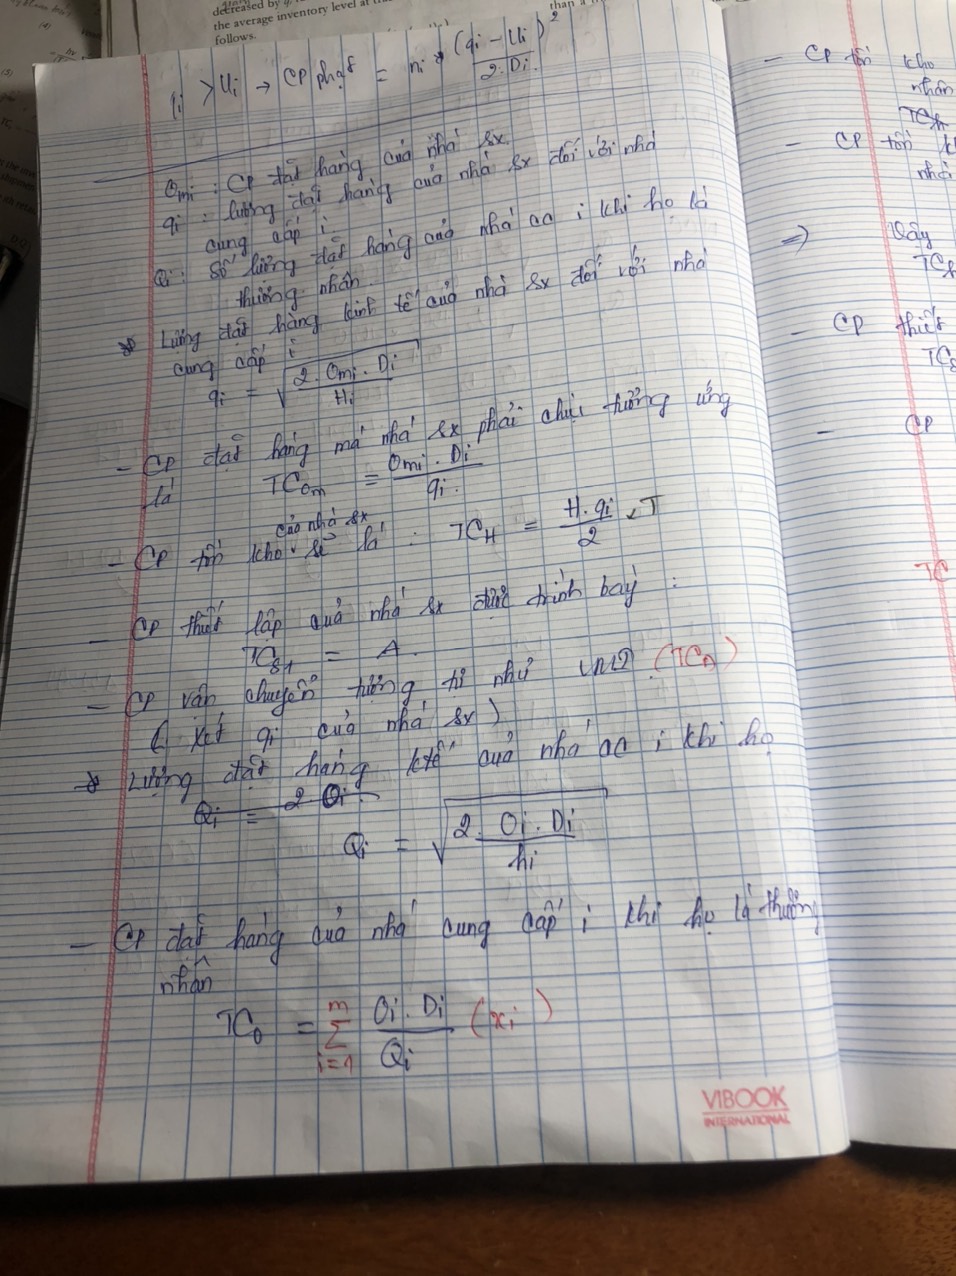 decreased by
the average inventory level at
follows.
than a
qi > Ui → CP phạt = ni * (qi - Ui)² / 2.Di
Omi : CP đặt hàng của nhà sx.
qi : lượng đặt hàng của nhà sx đối với nhà
cung cấp i
Qi : Số lượng đặt hàng của nhà cc i khi họ là
thương nhân.
* Lượng đặt hàng kinh tế của nhà sx đối với nhà
cung cấp i
qi = √(2.Omi.Di / Hi)
- CP đặt hàng mà nhà sx phải chịu tương ứng
là TCom = Omi.Di / qi.
của nhà sx
- CP tồn kho sẽ là : TCH = H.qi / 2 × T
- CP thiết lập của nhà sx được trình bày :
TCS1 = A.
- CP vận chuyển tương tự như VMI (TCn)
( xét qi của nhà sx )
* Lượng đặt hàng ktế của nhà cc i khi họ
Qi = 2 Oi
Qi = √(2.Oi.Di / hi)
- CP đặt hàng của nhà cung cấp i khi họ là thương
nhân
TCo = Σ i=1 m Oi.Di / Qi (xi)
VIBOOK
INTERNATIONAL
- CP tồn kho
nhân
- CP tồn k
nhà
⇒ Vậy
- CP thiết
- CP
TC